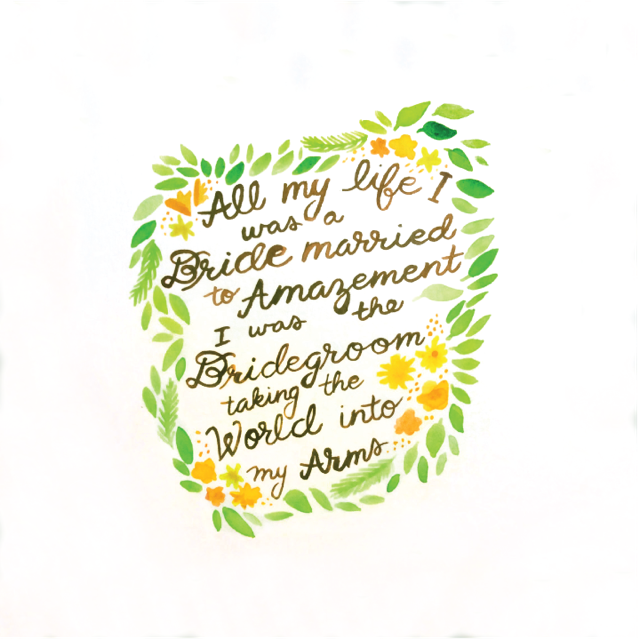 All my life I
was a
Bride married
to Amazement
I was the
Bridegroom
taking the
World into
my Arms